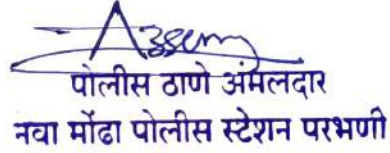 पोलीस ठाणे अंमलदार
नवा मोंढा पोलीस स्टेशन परभणी